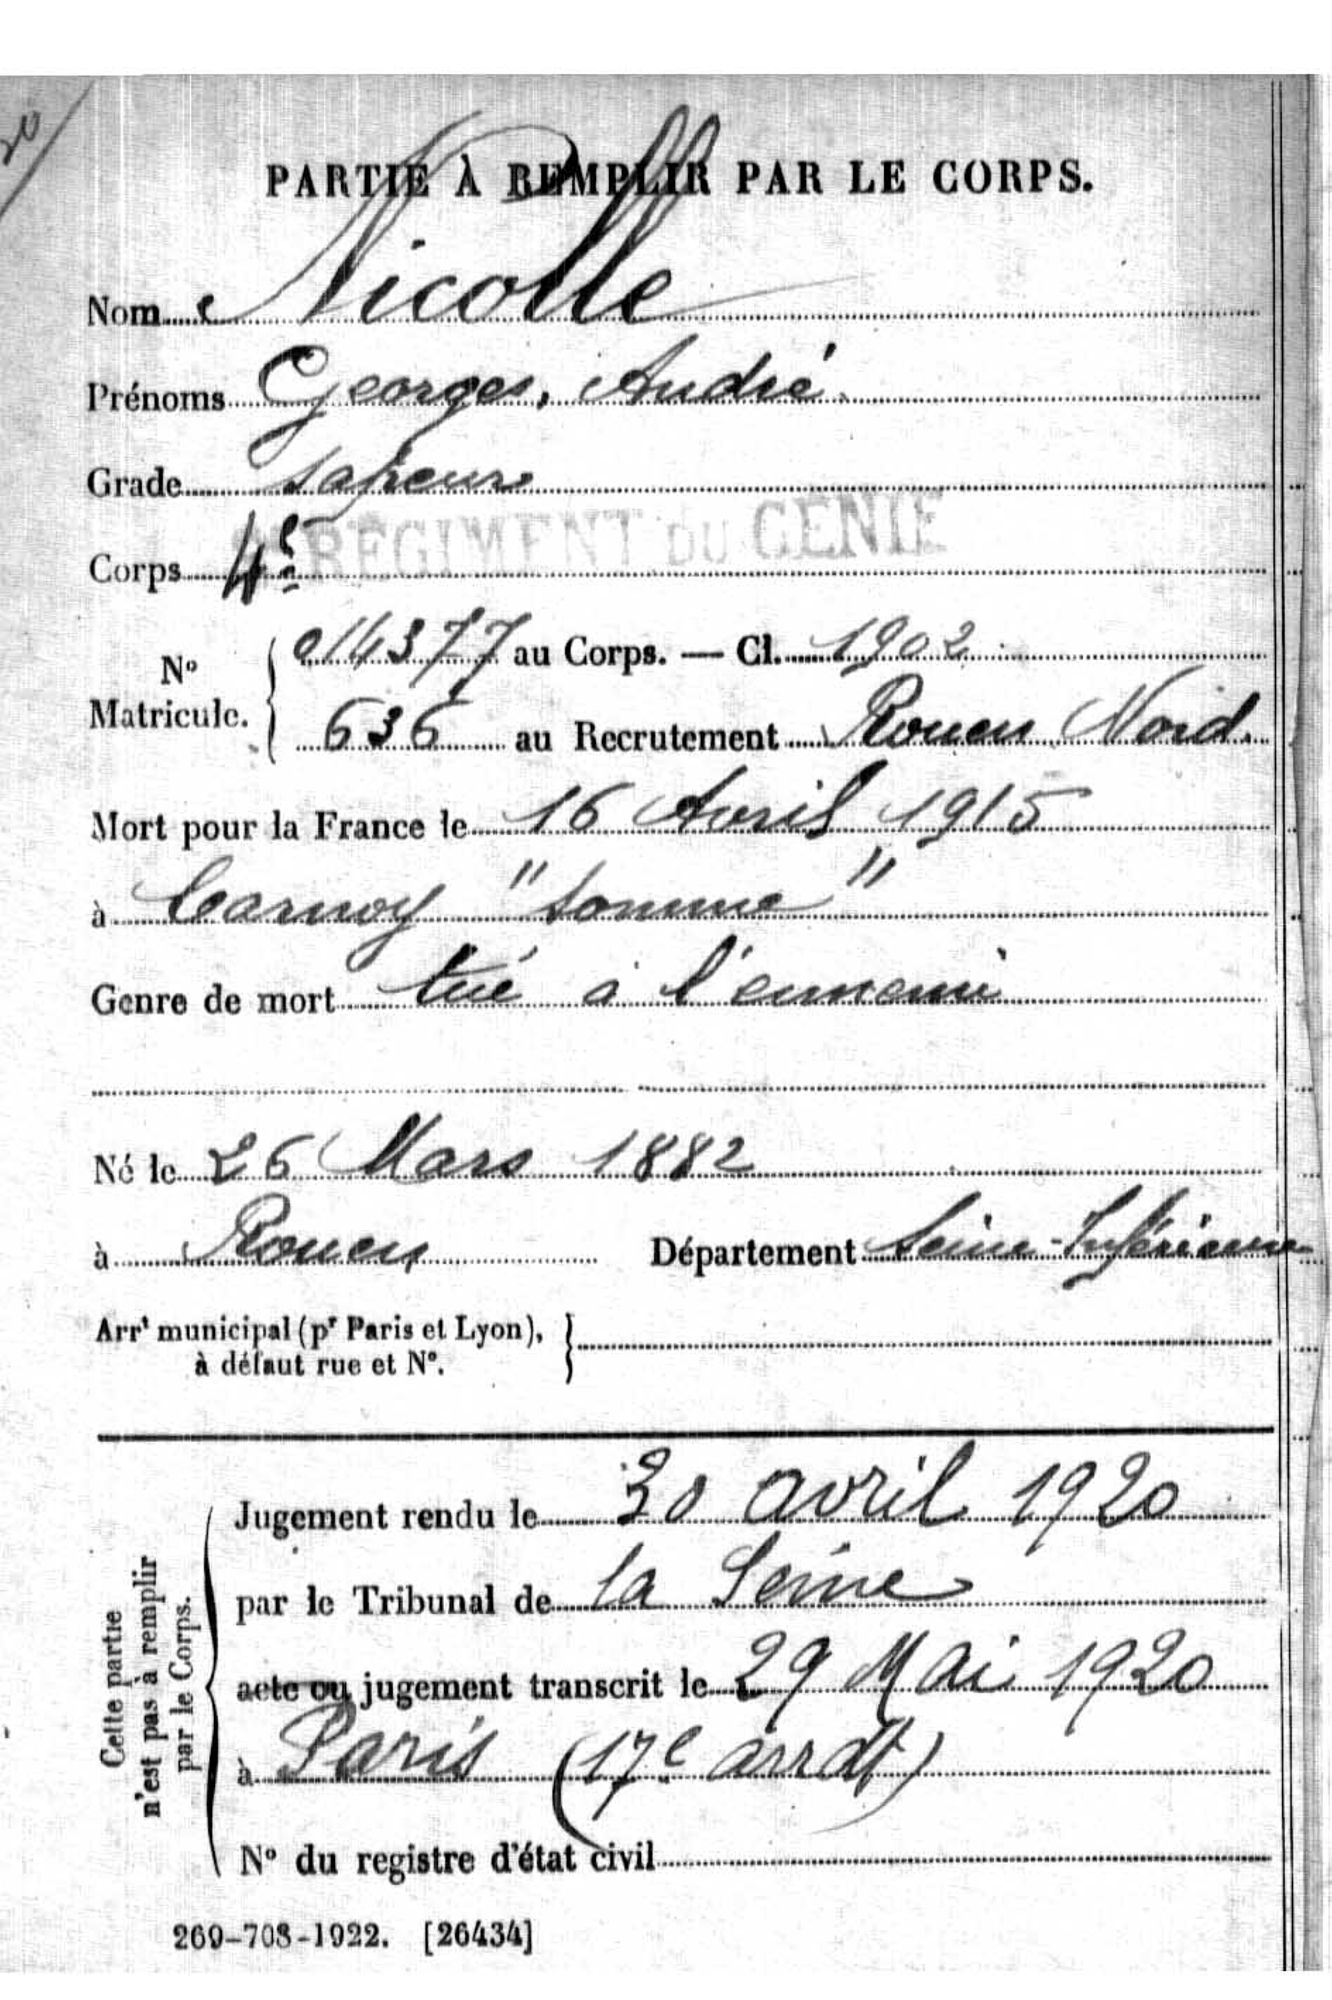 20
PARTIE À REMPLIR PAR LE CORPS.
Nom Nicolle
Prénoms Georges, André.
Grade Sapeur
Corps 4e RÉGIMENT DU GÉNIE
No Matricule. { 014377 au Corps. — Cl. 1902
636 au Recrutement Rouen Nord.
Mort pour la France le 16 Avril 1915
à Carnoy "Somme"
Genre de mort tué à l'ennemi
Né le 26 Mars 1882
à Rouen Département Seine-Inférieure
Arrt municipal (pr Paris et Lyon), }
à défaut rue et No.
Cette partie
n'est pas à remplir
par le Corps.
Jugement rendu le 30 avril 1920
par le Tribunal de la Seine
acte ou jugement transcrit le 29 Mai 1920
à Paris (17e arrdt)
No du registre d'état civil
269-708-1922. [26434]